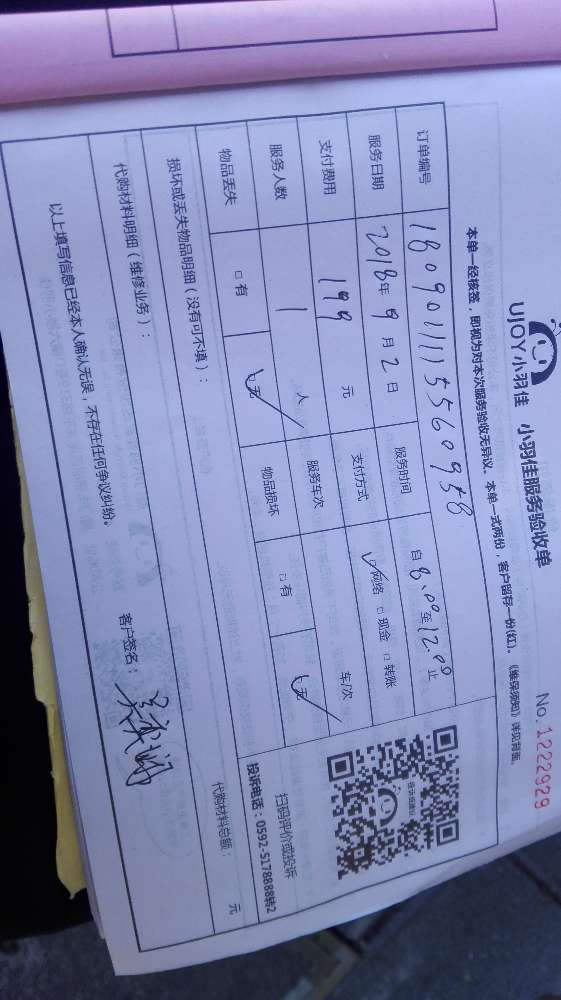 UJOY小羽佳 小羽佳服务验收单
No. 1222929
本单一经核签，即视为对本次服务验收无异议。本单一式两份，客户留存一份(红)。《维保须知》详见背面。
订单编号 1809011115560958
服务日期 2018年9月2日 服务时间 自8:00至12:00止
支付费用 199 元 支付方式 ☑网络 □现金 □转账
服务人数 1 人 服务车次 车/次
物品丢失 □有 ☑无 物品损坏 □有 ☑无
扫码评价或投诉
投诉电话：0592-5178888转2
损坏或丢失物品明细（没有可不填）：
代购材料明细（维修业务）：
代购材料总额： 元
以上填写信息已经本人确认无误，不存在任何争议纠纷。
客户签名：